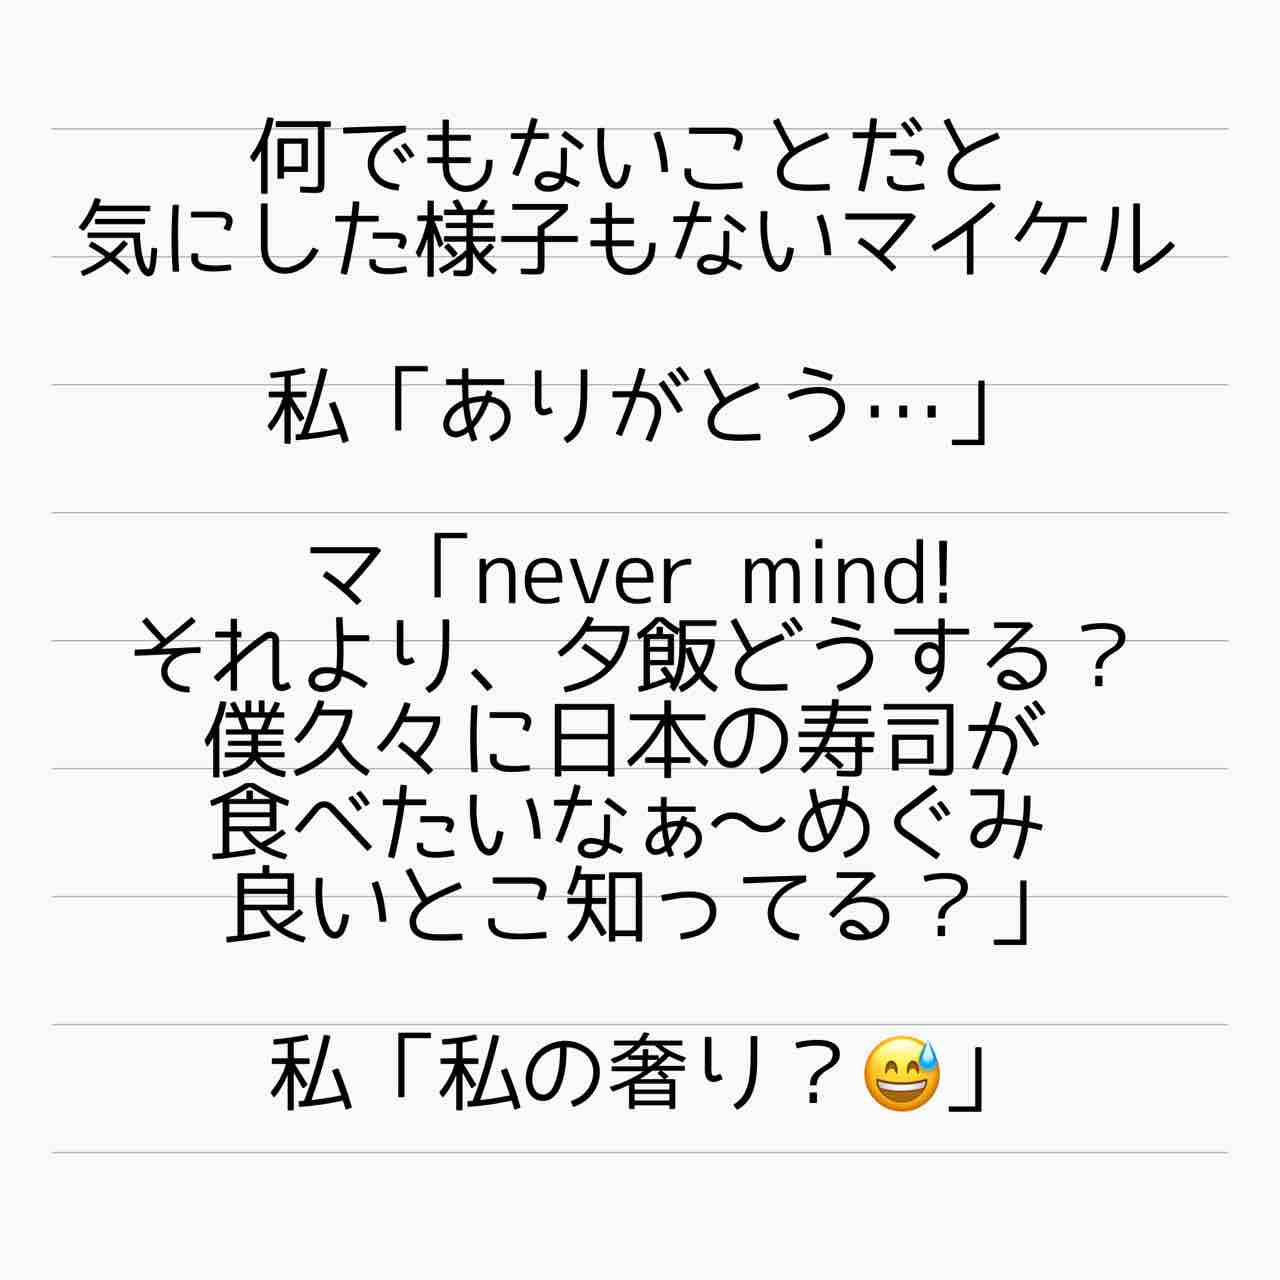 何でもないことだと
気にした様子もないマイケル
私「ありがとう…」
マ「never mind!
それより、夕飯どうする？
僕久々に日本の寿司が
食べたいなぁ〜めぐみ
良いとこ知ってる？」
私「私の奢り？😅」